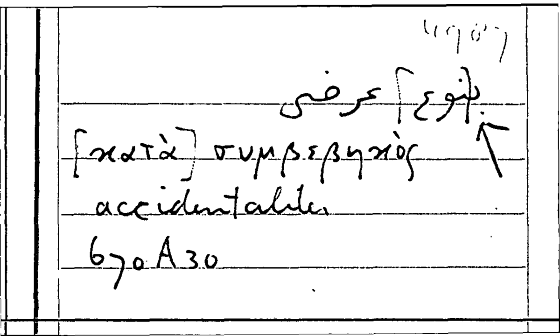 [بنوع] عرضى
[κατὰ] συμβεβηκὸς
accidentaliter
670A30